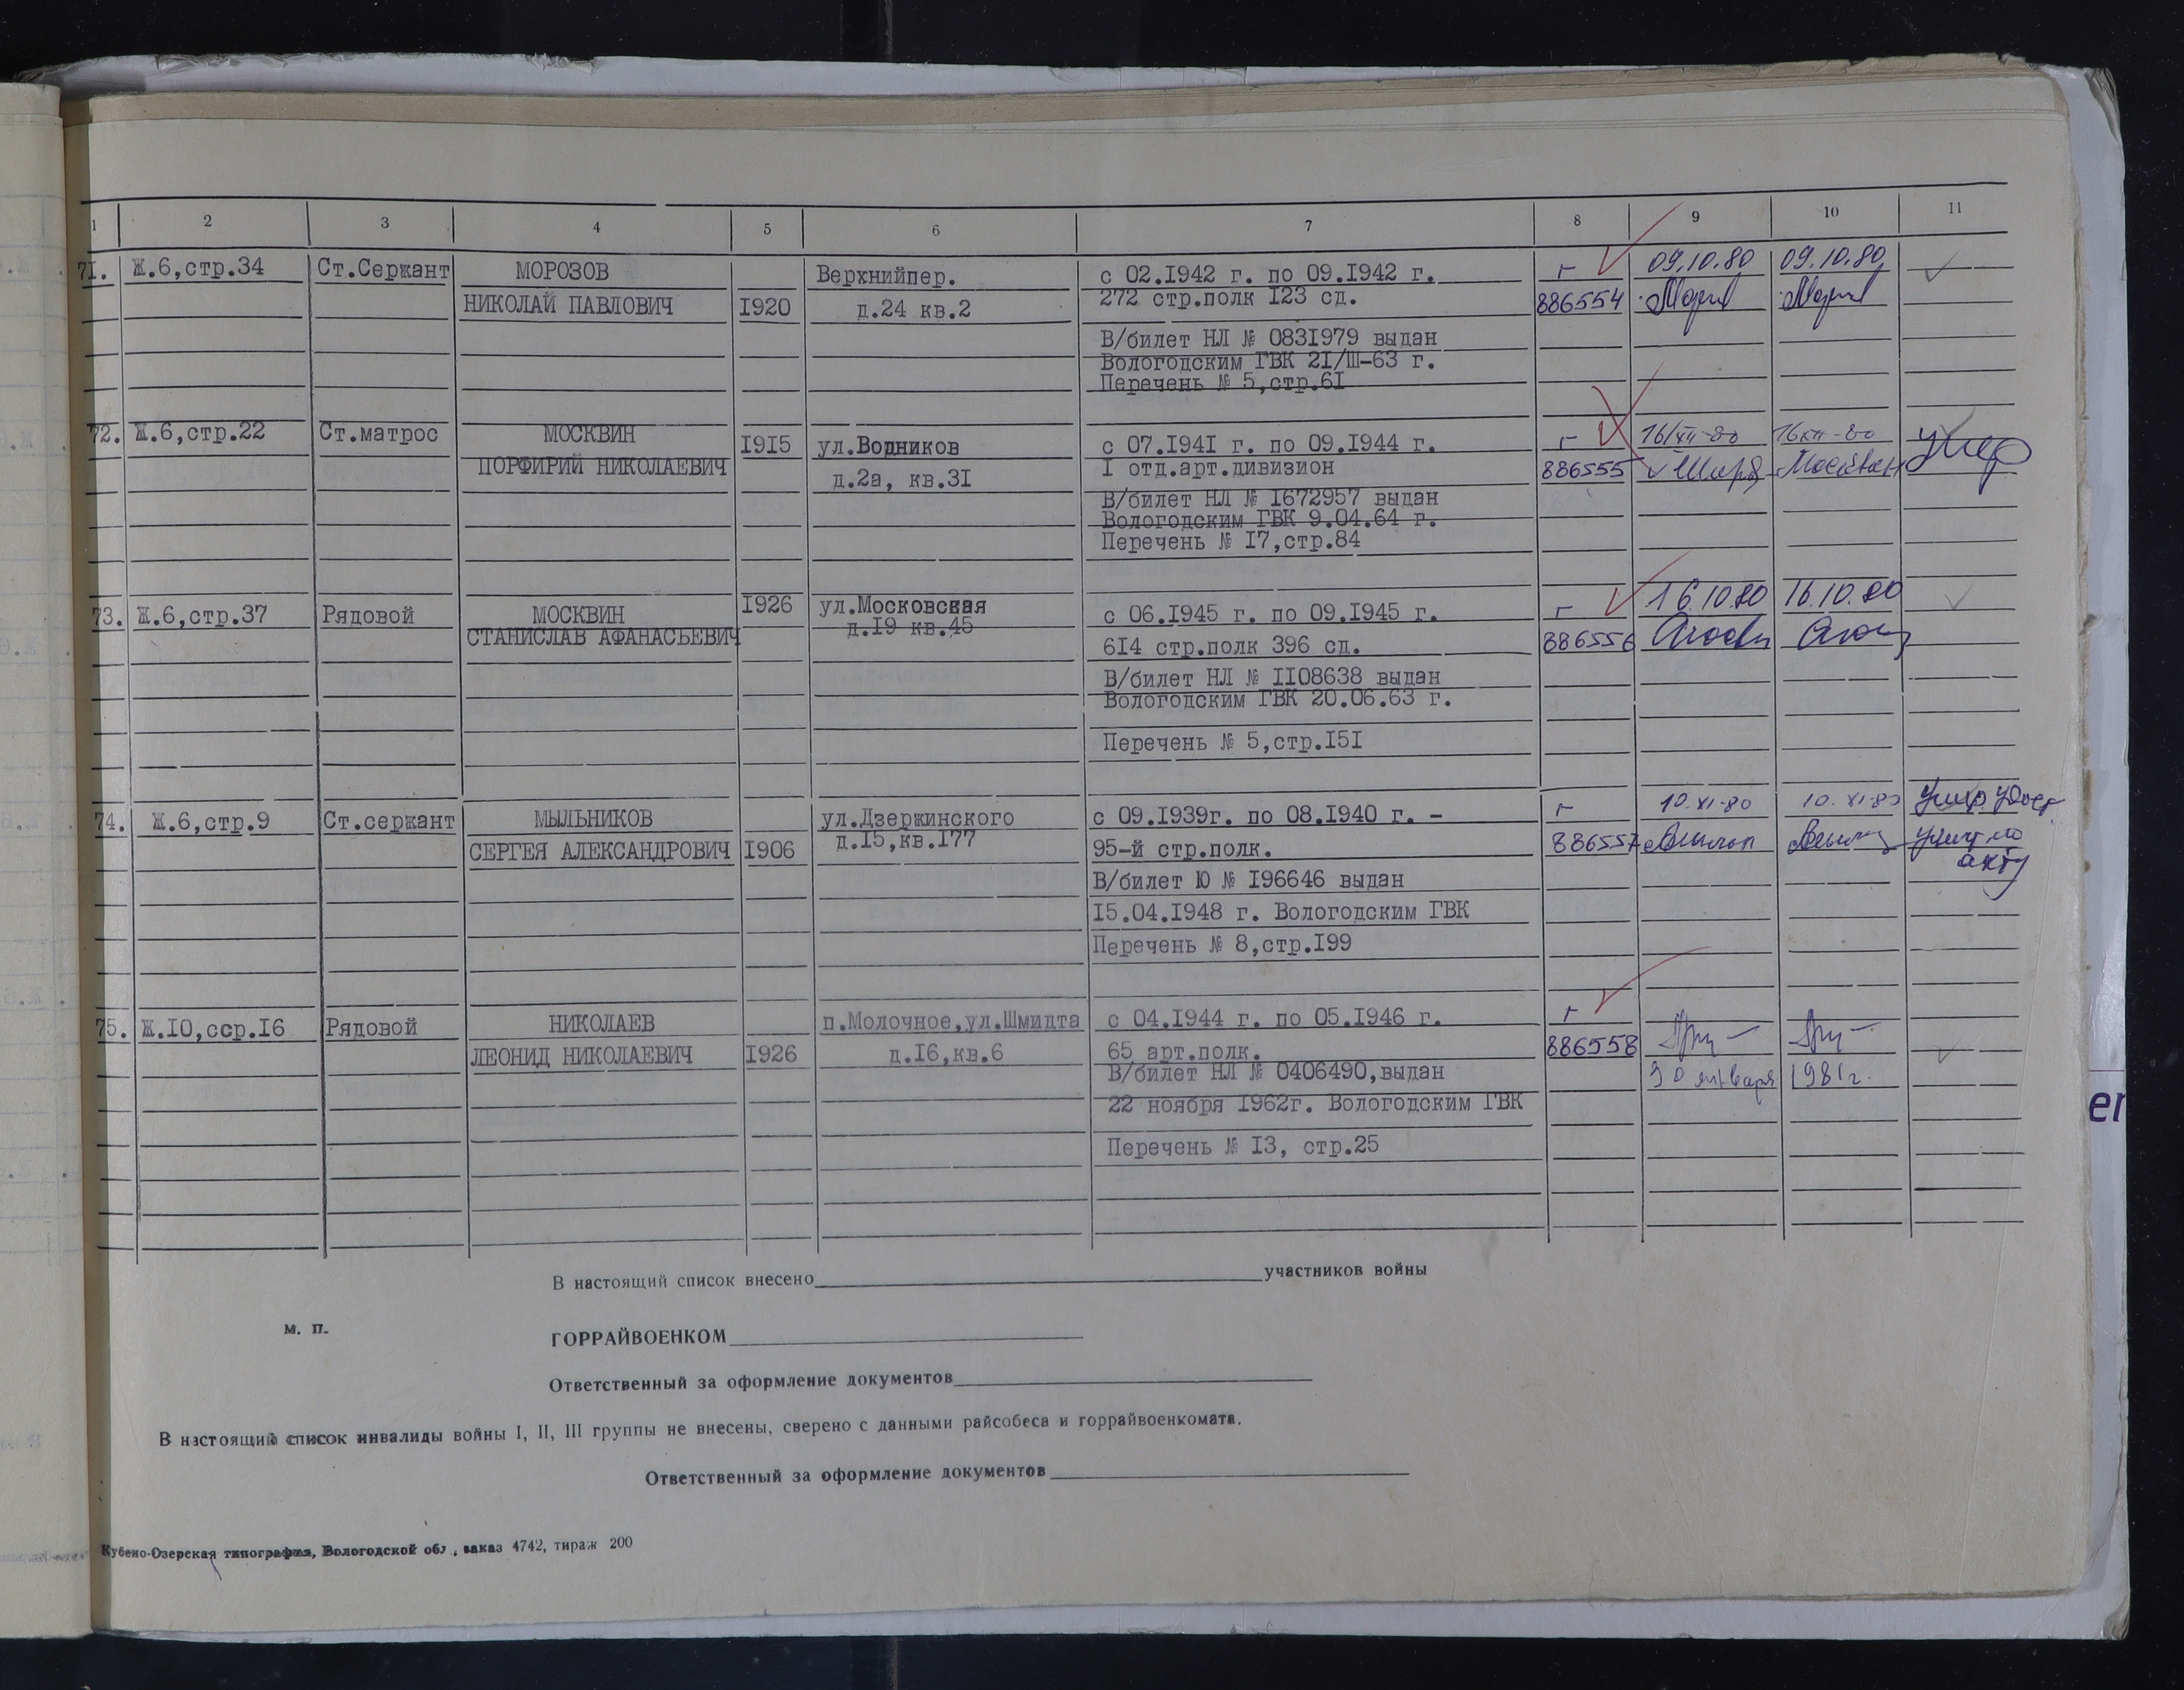 1 2 3 4 5 6 7 8 9 10 11
71. Ж.6,стр.34 Ст.Сержант МОРОЗОВ Верхнийпер. с 02.1942 г. по 09.1942 г. г 09.10.80 09.10.80
НИКОЛАЙ ПАВЛОВИЧ 1920 д.24 кв.2 272 стр.полк 123 сд. 886554
В/билет НЛ № 0831979 выдан
Вологодским ГВК 21/Ш-63 г.
Перечень № 5,стр.61
72. Ж.6,стр.22 Ст.матрос МОСКВИН 1915 ул.Водников с 07.1941 г. по 09.1944 г. г 16/XII-80 16 XII-80 умер
ПОРФИРИЙ НИКОЛАЕВИЧ д.2а, кв.31 1 отд.арт.дивизион 886555
В/билет НЛ № 1672957 выдан
Вологодским ГВК 9.04.64 г.
Перечень № 17,стр.84
73. Ж.6,стр.37 Рядовой МОСКВИН 1926 ул.Московская с 06.1945 г. по 09.1945 г. г 16.10.80 16.10.80
СТАНИСЛАВ АФАНАСЬЕВИЧ д.19 кв.45 614 стр.полк 396 сд. 886556
В/билет НЛ № 1108638 выдан
Вологодским ГВК 20.06.63 г.
Перечень № 5,стр.151
74. Ж.6,стр.9 Ст.сержант МЫЛЬНИКОВ ул.Дзержинского с 09.1939г. по 08.1940 г. - г 10.XI-80 10.XI-80 Умер удост
СЕРГЕЯ АЛЕКСАНДРОВИЧ 1906 д.15,кв.177 95-й стр.полк. 886557 уничт по
акту
В/билет Ю № 196646 выдан
15.04.1948 г. Вологодским ГВК
Перечень № 8,стр.199
75. Ж.10,сср.16 Рядовой НИКОЛАЕВ п.Молочное,ул.Шмидта с 04.1944 г. по 05.1946 г. г
ЛЕОНИД НИКОЛАЕВИЧ 1926 д.16,кв.6 65 арт.полк. 886558
В/билет НЛ № 0406490,выдан 30 января 1981г.
22 ноября 1962г. Вологодским ГВК
Перечень № 13, стр.25
В настоящий список внесено участников войны
м. п. ГОРРАЙВОЕНКОМ
Ответственный за оформление документов
В настоящий список инвалиды войны I, II, III группы не внесены, сверено с данными райсобеса и горрайвоенкомата.
Ответственный за оформление документов
Кубено-Озерская типография, Вологодской обл., заказ 4742, тираж 200